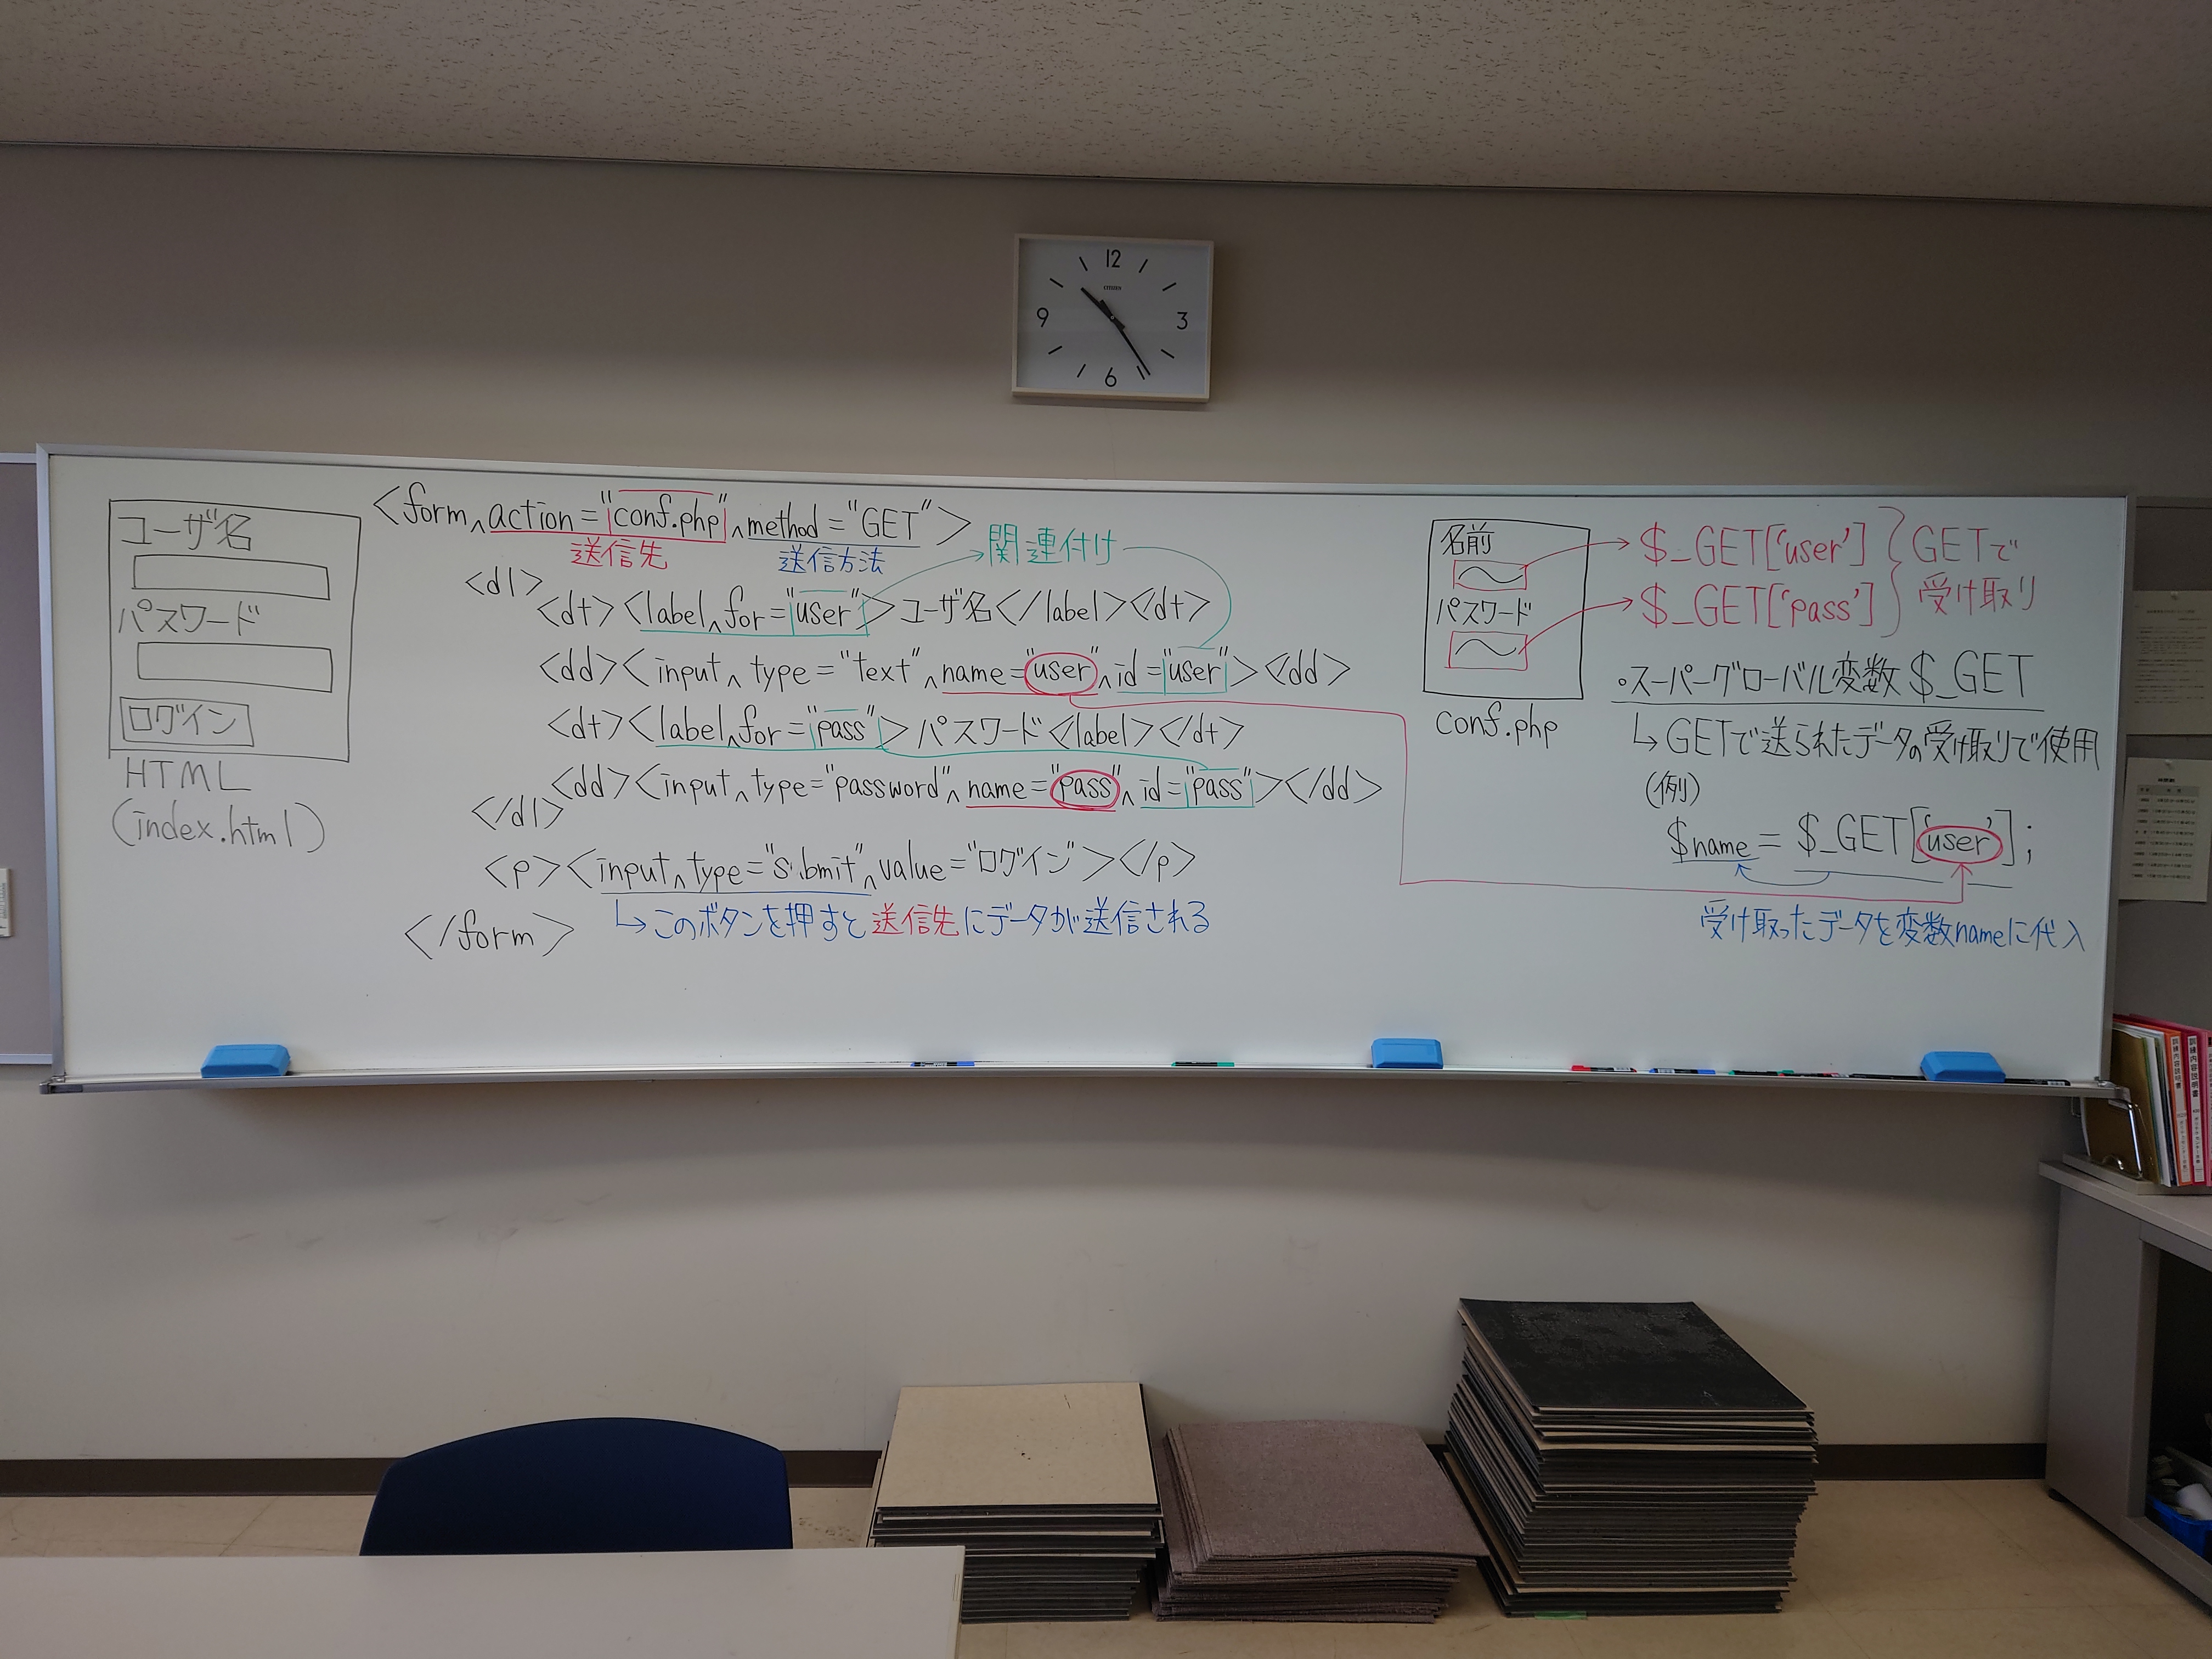 12
CITIZEN
9
3
6
ユーザ名
パスワード
ログイン
HTML
(index.html)
<form^action="conf.php"^method="GET">
送信先
送信方法
関連付け
<dl>
<dt><label^for="user">ユーザ名</label><dt>
<dd><input^type="text"^name="user"^id="user"><dd>
<dt><label^for="pass">パスワード<label></dt>
<dd><input^type="password"^name="pass"^id="pass"></dd>
</dl>
<p><input^type="submit"^value="ログイン"></p>
↳このボタンを押すと送信先にデータが送信される
</form>
名前
パスワード
conf.php
$_GET['user']
$_GET['pass']
GETで
受け取り
・スーパーグローバル変数$_GET
↳GETで送られたデータの受け取りで使用
(例)
$name = $_GET['user'];
受け取ったデータを変数nameに代入
訓練内容説明書
訓練内容説明書